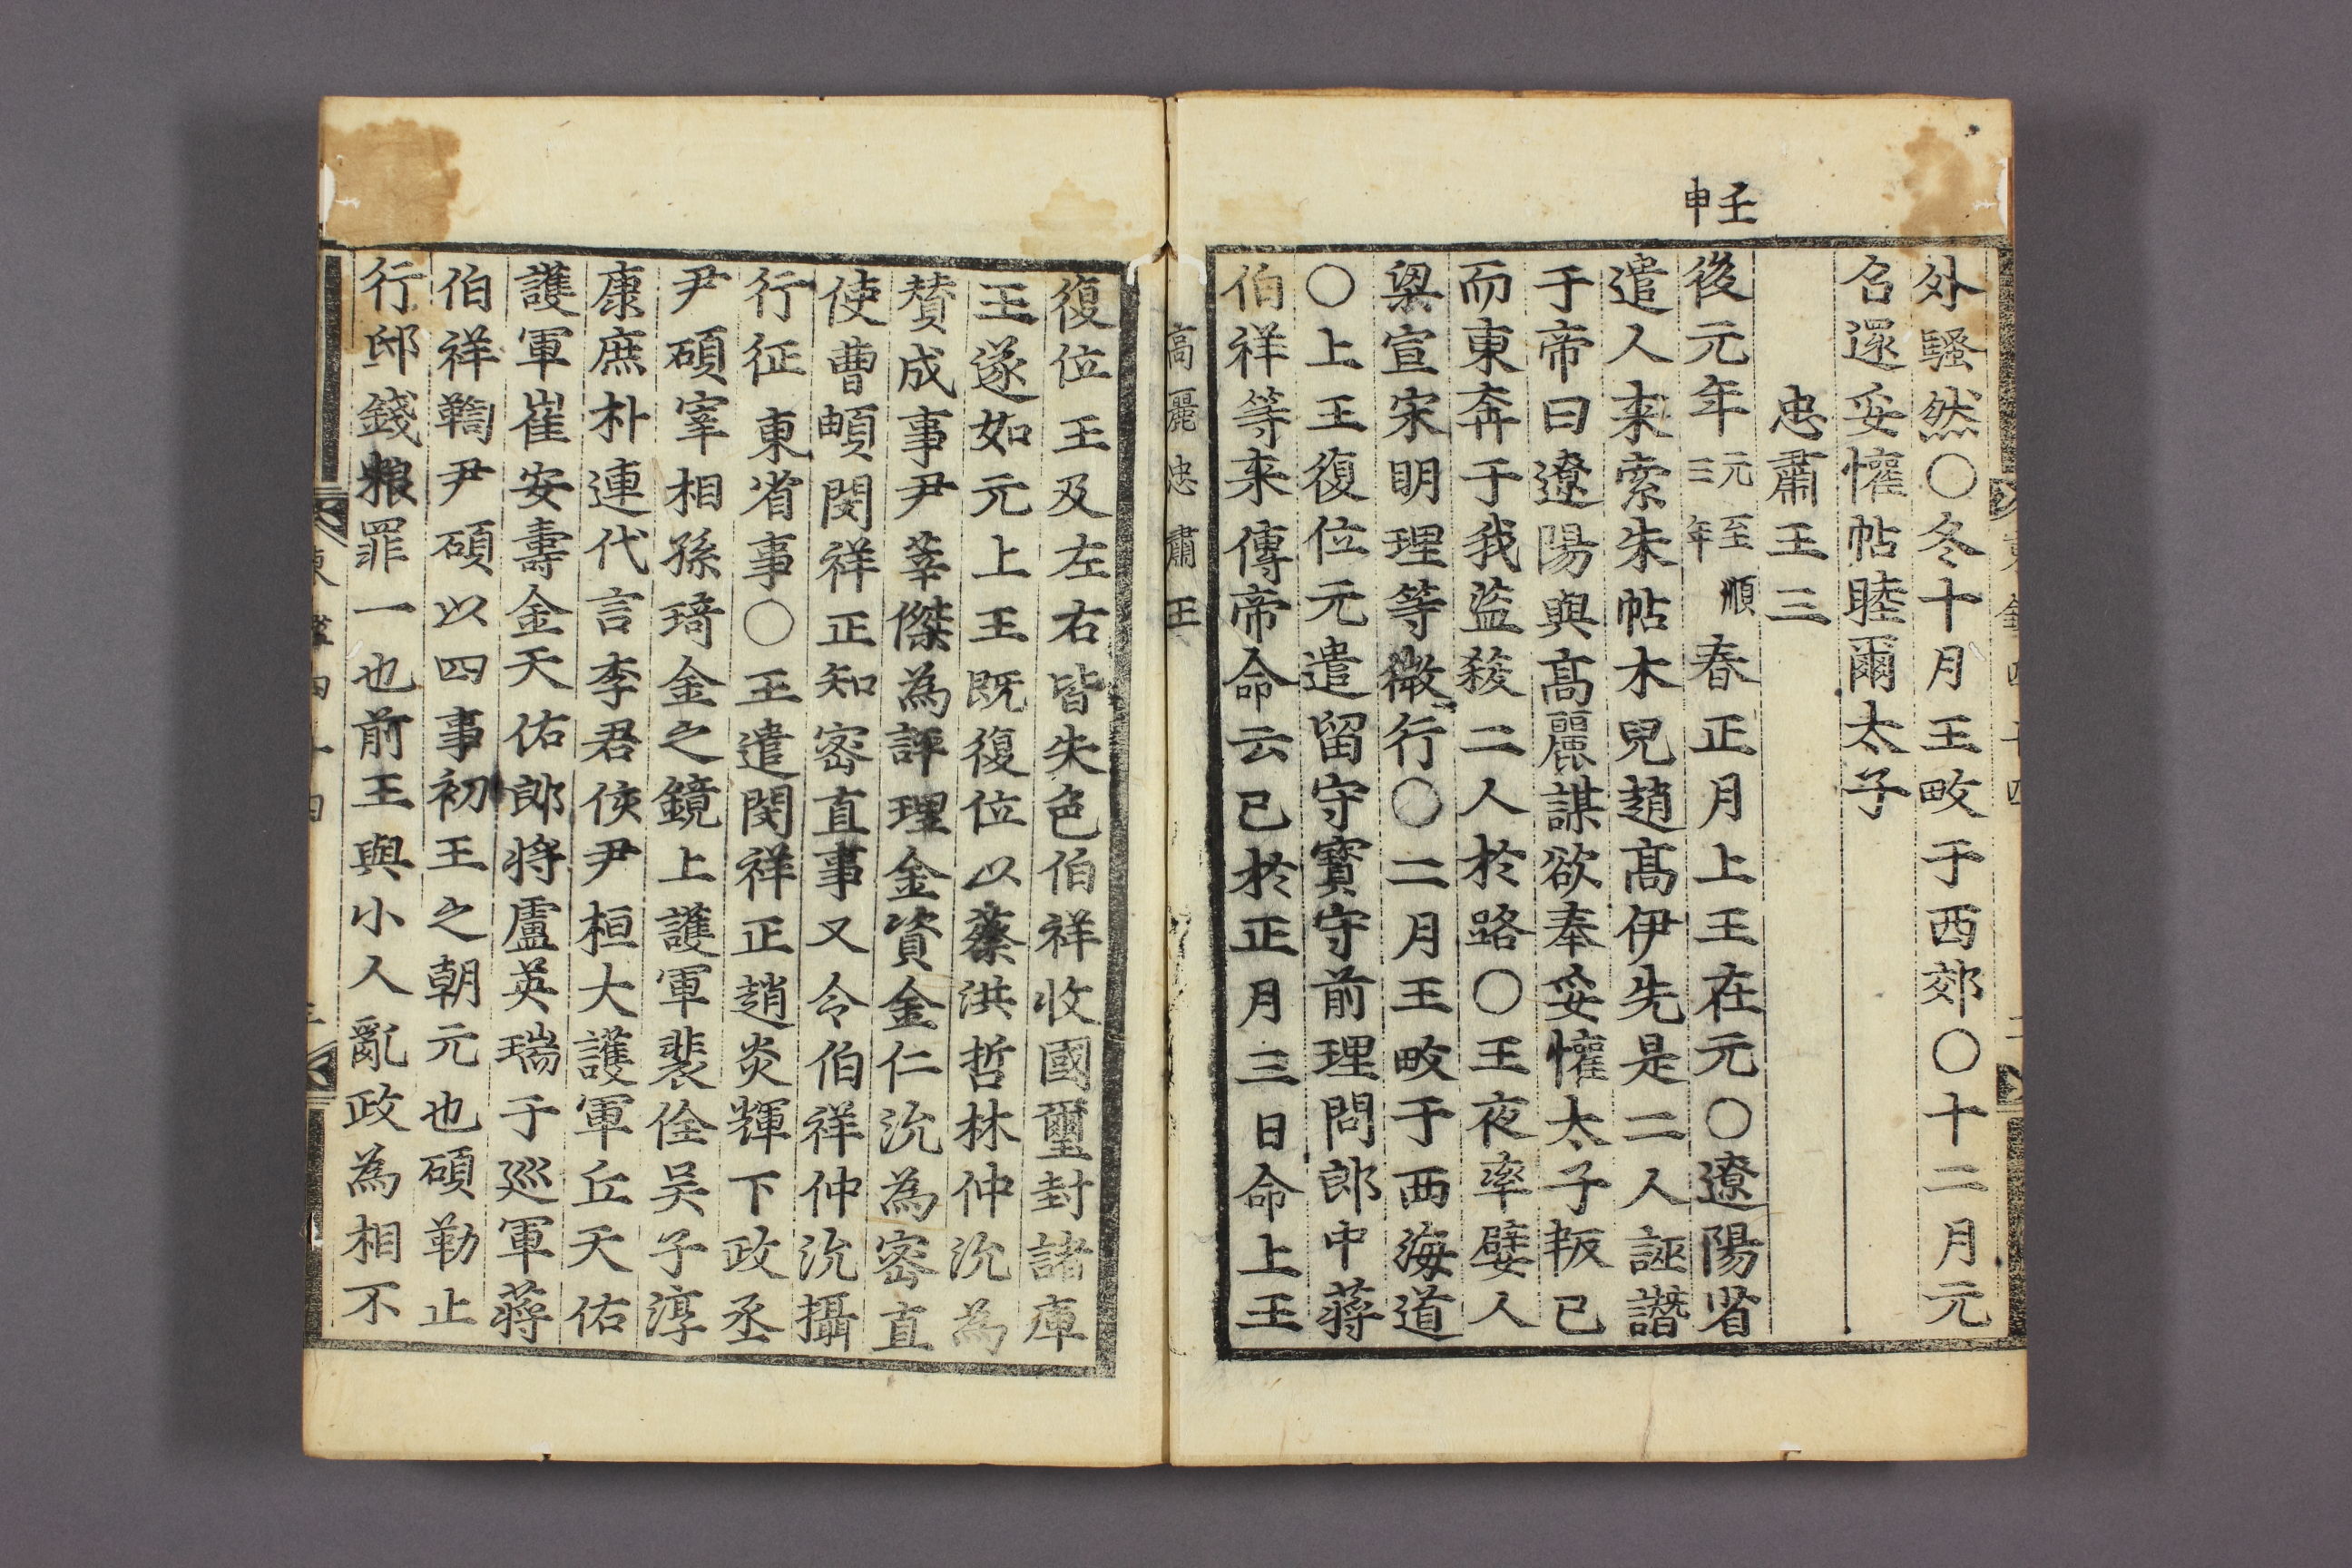 壬申
外騷然○冬十月王畋于西郊○十二月元
召還妥懽帖睦爾太子
忠肅王三
後元年元至順三年春正月上王在元○遼陽省
遣人来索朱帖木兒趙髙伊先是二人誣譖
于帝曰遼陽與髙麗謀欲奉妥懽太子叛已
而東奔于我盜殺二人於路○王夜率嬖人
梁宣宋明理等微行○二月王畋于西海道
○上王復位元遣留守寳守前理問郎中蔣
伯祥等来傳帝命云已於正月三日命上王
高麗忠肅王
復位王及左右皆失色伯祥收國璽封諸庫
王遂如元上王既復位以蔡洪哲林仲沇為
賛成事尹莘傑為評理金資金仁沇為密直
使曹頔閔祥正知密直事又令伯祥仲沇攝
行征東省事○王遣閔祥正趙炎輝下政丞
尹碩宰相孫琦金之鏡上護軍裴佺吴子淳
康庶朴連代言李君侅尹桓大護軍丘天佑
護軍崔安壽金天佑郎将盧英瑞于巡軍蔣
伯祥鞫尹碩以四事初王之朝元也碩勒止
行邸錢粮罪一也前王與小人亂政為相不